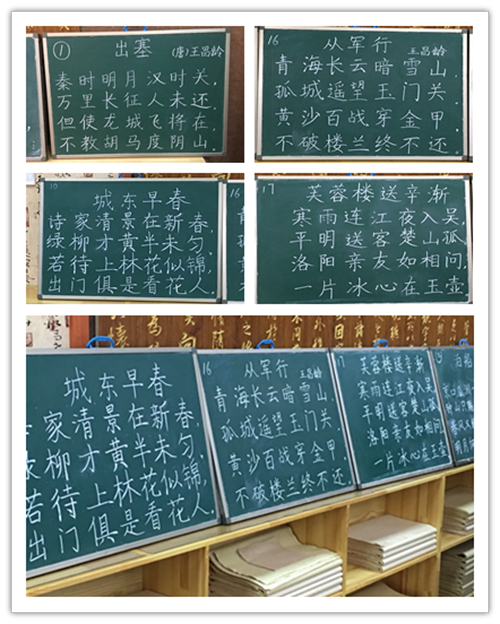 ① 出塞 (唐)王昌龄
秦时明月汉时关,
万里长征人未还.
但使龙城飞将在,
不教胡马度阴山.
16 从军行 王昌龄
青海长云暗雪山,
孤城遥望玉门关
黄沙百战穿金甲
不破楼兰终不还.
10 城东早春
诗家清景在新春,
绿柳才黄半未匀.
若待上林花似锦,
出门俱是看花人.
16
青
孤
黄
不
17 芙蓉楼送辛渐
寒雨连江夜入吴
平明送客楚山孤
洛阳亲友如相问,
一片冰心在玉壶
城东早春
家清景在新春,
柳才黄半未匀.
若待上林花似锦,
出门俱是看花人.
16 从军行 王昌龄
青海长云暗雪山,
孤城遥望玉门关
黄沙百战穿金甲
不破楼兰终不还.
17 芙蓉楼送辛渐
寒雨连江夜入吴
平明送客楚山孤
洛阳亲友如相问
一片冰心在玉壶